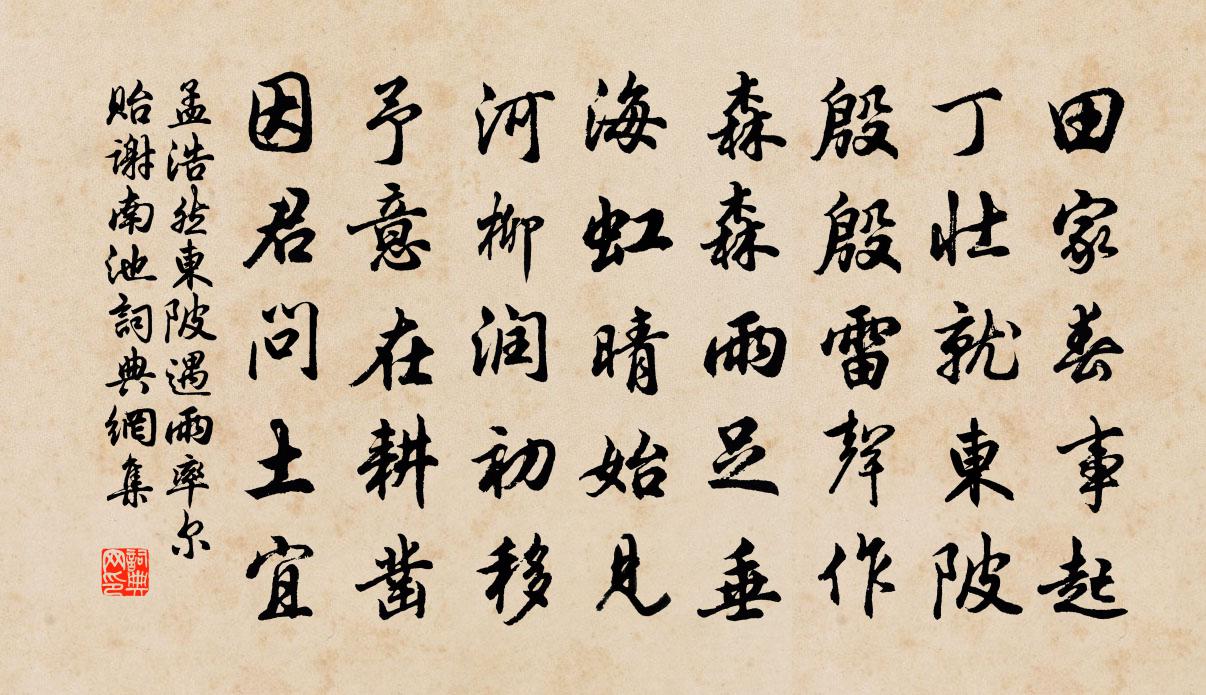 田家春事起
丁壮就東陂
殷殷雷聲作
森森雨足垂
海虹晴始見
河柳润初移
予意在耕凿
因君问土宜
孟浩然東陂遇雨率尔
贻谢南池詞典網集
詞典网印